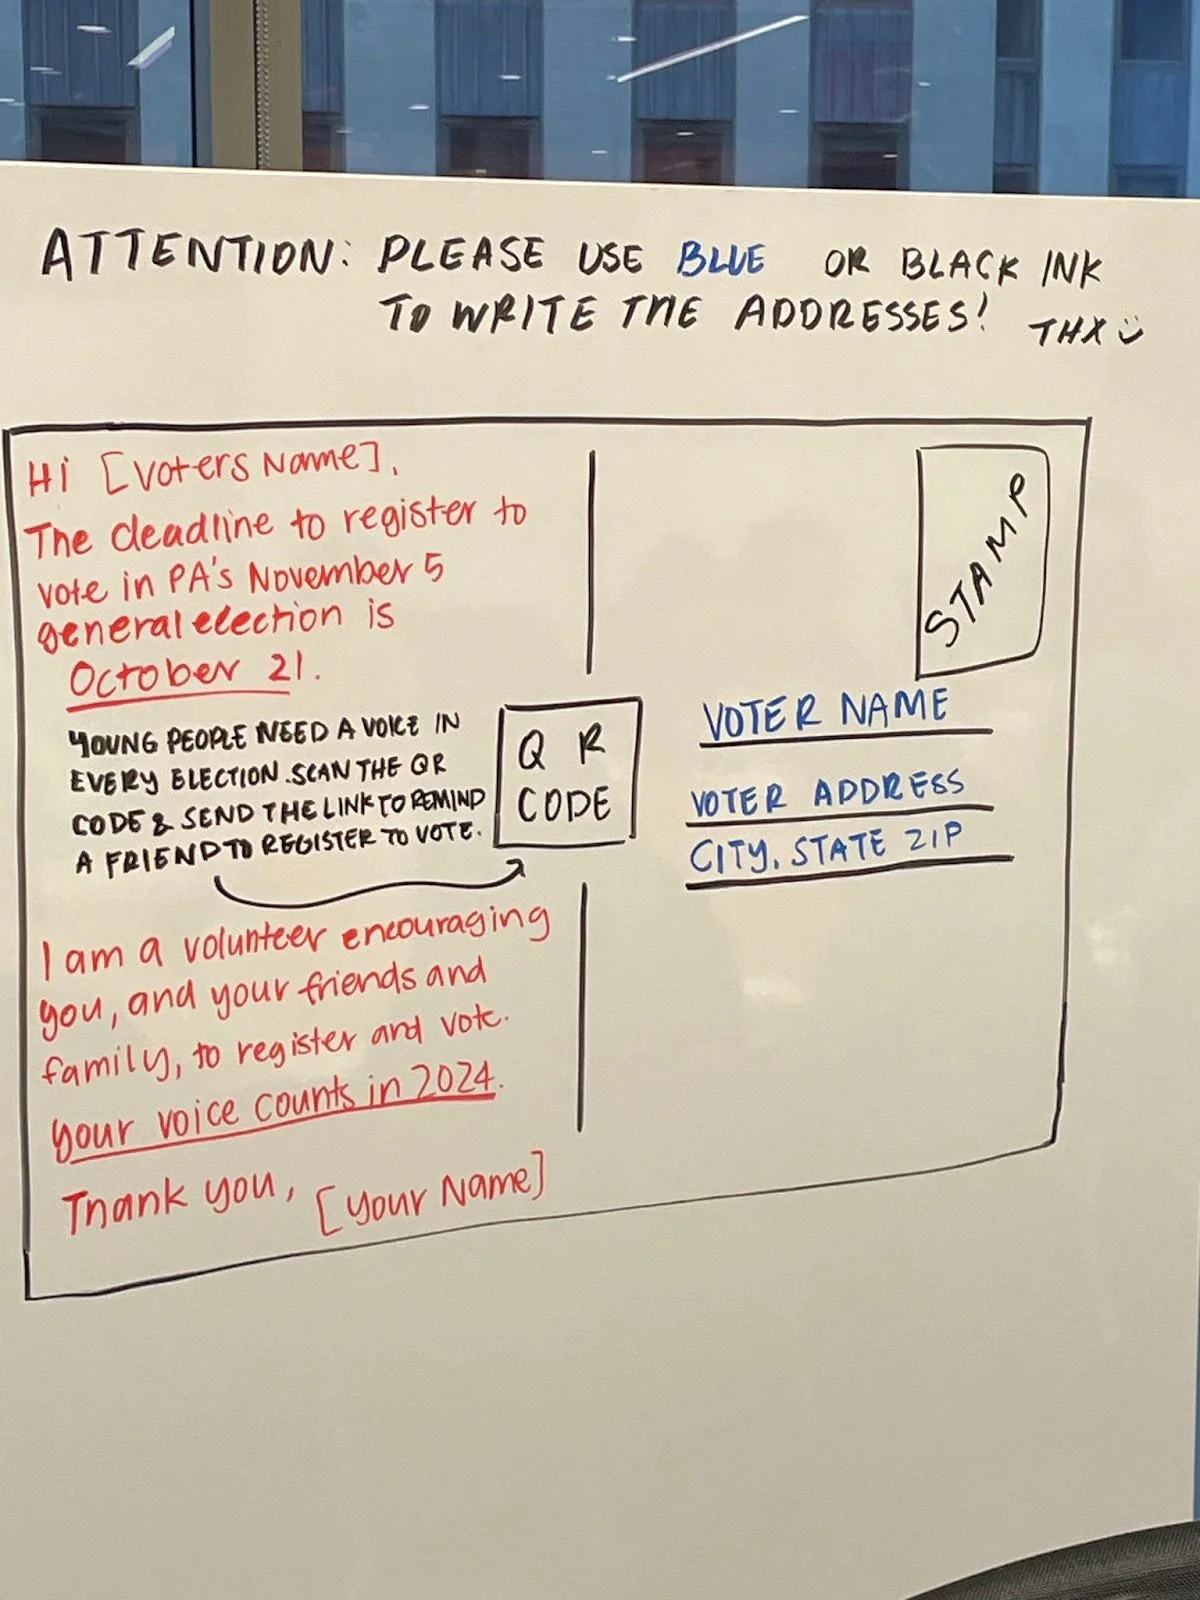 ATTENTION: PLEASE USE BLUE OR BLACK INK
TO WRITE THE ADDRESSES! THX
Hi [Voters Name],
The deadline to register to
vote in PA's November 5
general election is
October 21.
YOUNG PEOPLE NEED A VOICE IN
EVERY ELECTION. SCAN THE QR
CODE & SEND THE LINK TO REMIND
A FRIEND TO REGISTER TO VOTE.
QR
CODE
I am a volunteer encouraging
you, and your friends and
family, to register and vote.
your voice counts in 2024.
Thank you, [your Name]
STAMP
VOTER NAME
VOTER ADDRESS
CITY, STATE ZIP